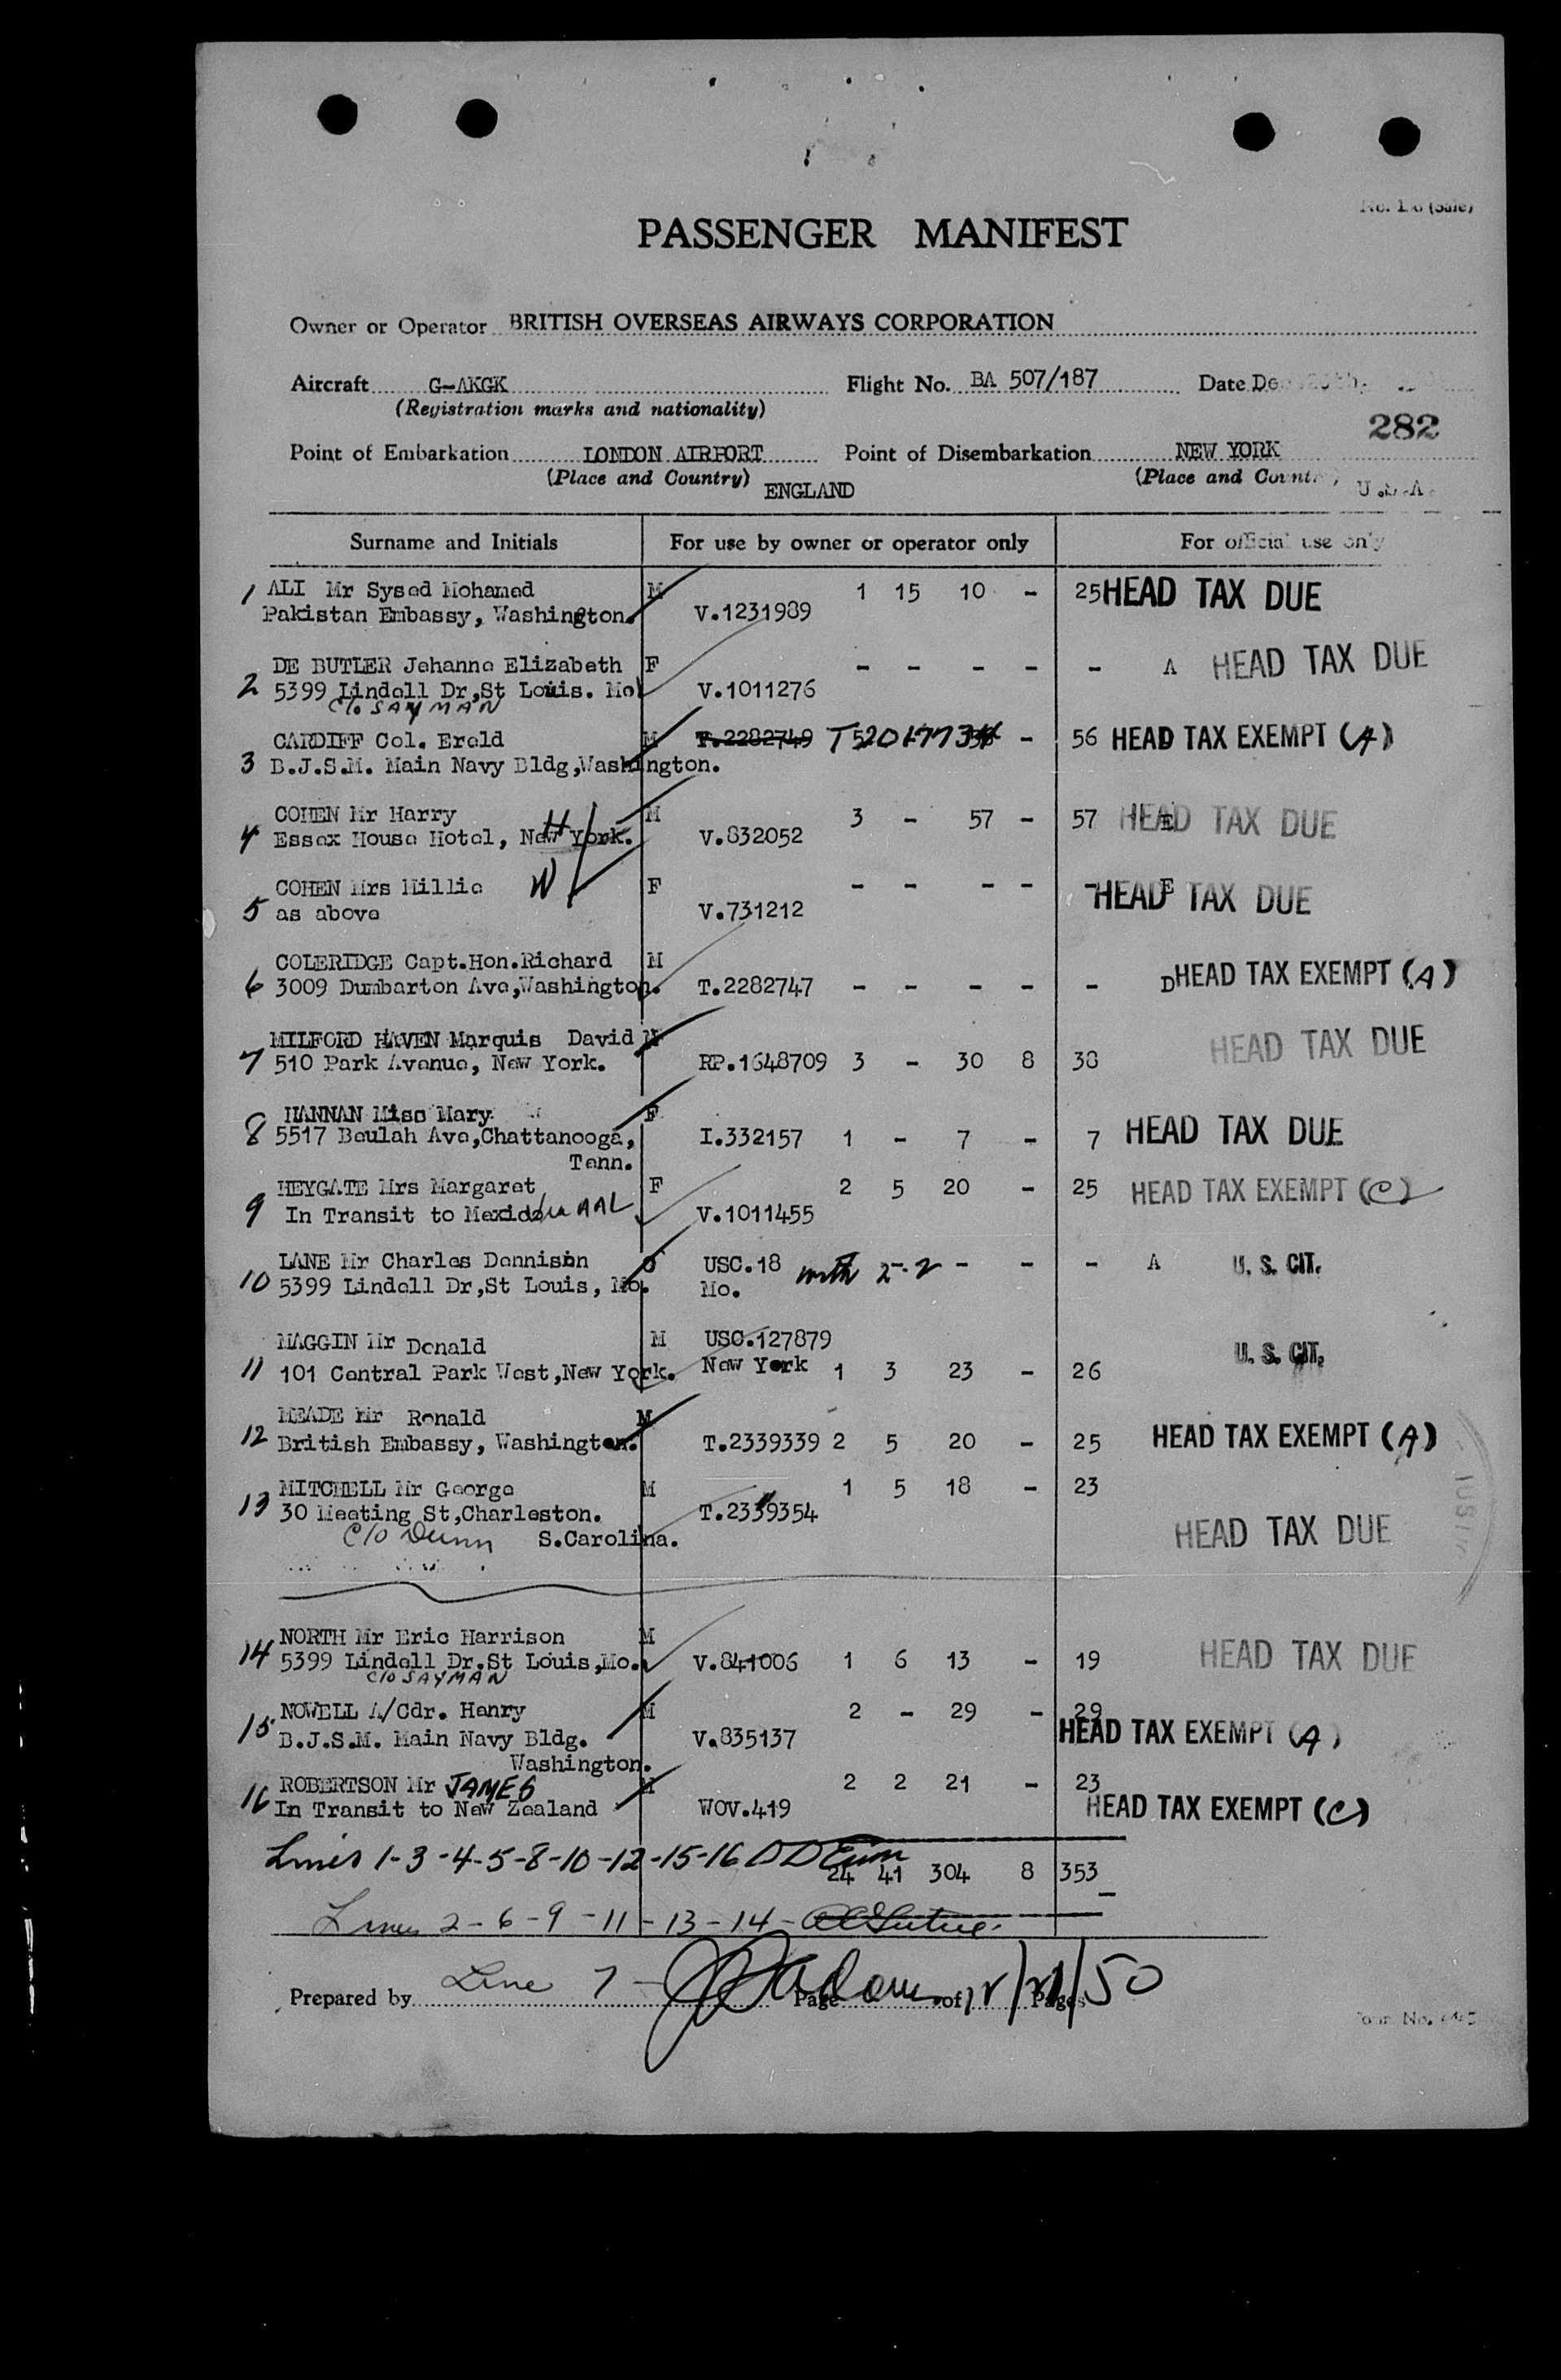 PASSENGER MANIFEST
Owner or Operator BRITISH OVERSEAS AIRWAYS CORPORATION
Aircraft G-AKGK Flight No. BA 507/187 Date
(Registration marks and nationality)
282
Point of Embarkation LONDON AIRPORT Point of Disembarkation NEW YORK
(Place and Country) ENGLAND (Place and Country) U.S.A.
Surname and Initials For use by owner or operator only For official use only
1 ALI Mr Syed Mohamed M 1 15 10 - 25 HEAD TAX DUE
Pakistan Embassy, Washington. V.1231989
DE BUTLER Johanna Elizabeth F - - - - - A HEAD TAX DUE
2 5399 Lindell Dr,St Louis. Mo. V.1011276
C/o SAYMAN
CARDIFF Col. Ereld M T.2282749 - 56 HEAD TAX EXEMPT (A)
3 B.J.S.M. Main Navy Bldg,Washington.
COHEN Mr Harry H M 3 - 57 - 57 E HEAD TAX DUE
4 Essex House Hotel, New York. V.832052
COHEN Mrs Millie W F - - - - - E HEAD TAX DUE
5 as above V.731212
COLERIDGE Capt.Hon.Richard M
6 3009 Dumbarton Ave,Washington. T.2282747 - - - - - D HEAD TAX EXEMPT (A)
MILFORD HAVEN Marquis David M HEAD TAX DUE
7 510 Park Avenue, New York. RP.1648709 3 - 30 8 38
HANNAN Miss Mary F
8 5517 Beulah Ave,Chattanooga, I.332157 1 - 7 - 7 HEAD TAX DUE
Tenn.
HEYGATE Mrs Margaret F 2 5 20 - 25 HEAD TAX EXEMPT (C)
9 In Transit to Mexico via AAL V.1011455
LANE Mr Charles Dennison USC.18 with 2 - - - A U. S. CIT.
10 5399 Lindell Dr,St Louis, Mo. Mo.
MAGGIN Mr Donald M USC.127879 U. S. CIT.
11 101 Central Park West,New York. New York 1 3 23 - 26
MEADE Mr Ronald M
12 British Embassy, Washington. T.2339339 2 5 20 - 25 HEAD TAX EXEMPT (A)
MITCHELL Mr George M 1 5 18 - 23
13 30 Meeting St,Charleston. T.2339354
C/o Dunn S.Carolina. HEAD TAX DUE
NORTH Mr Eric Harrison M
14 5399 Lindell Dr.St Louis,Mo. V.841006 1 6 13 - 19 HEAD TAX DUE
C/o SAYMAN
NOWELL A/Cdr. Henry M 2 - 29 - 29
15 B.J.S.M. Main Navy Bldg. V.835137 HEAD TAX EXEMPT (A)
Washington.
ROBERTSON Mr JAMES M 2 2 21 - 23
16 In Transit to New Zealand WOV.419 HEAD TAX EXEMPT (C)
Lines 1-3-4-5-8-10-12-15-16
24 41 304 8 353
Lines 2-6-9-11-13-14-
Line 7 -
Prepared by Page of Pages